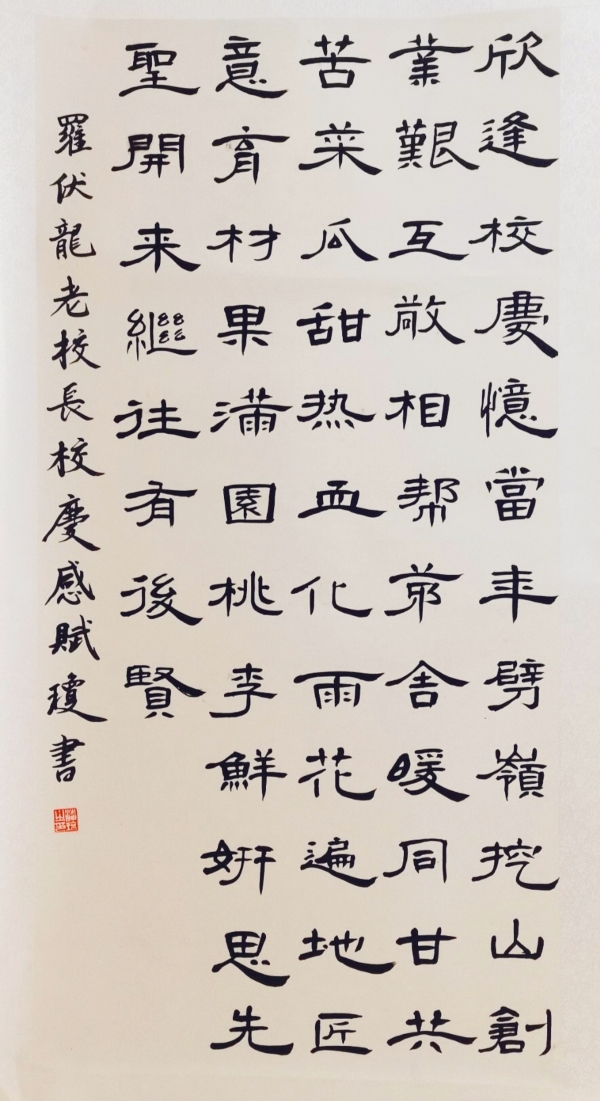 欣逢校慶憶當年劈嶺挖山創
業艱互敬相帮茅舍暖同甘共
苦菜瓜甜热血化雨花遍地匠
意育材果滿園桃李鮮妍思先
聖開来繼往有後賢
羅伏龍老校長校慶感賦瓊書